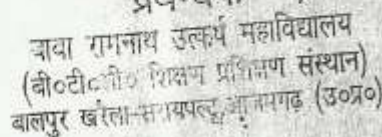 बाबा रामनाथ उत्कर्ष महाविद्यालय
(बी०टी०सी० शिक्षण प्रशिक्षण संस्थान)
बालपुर खरैला-सरायपल्टू,आजमगढ़ (उ०प्र०)